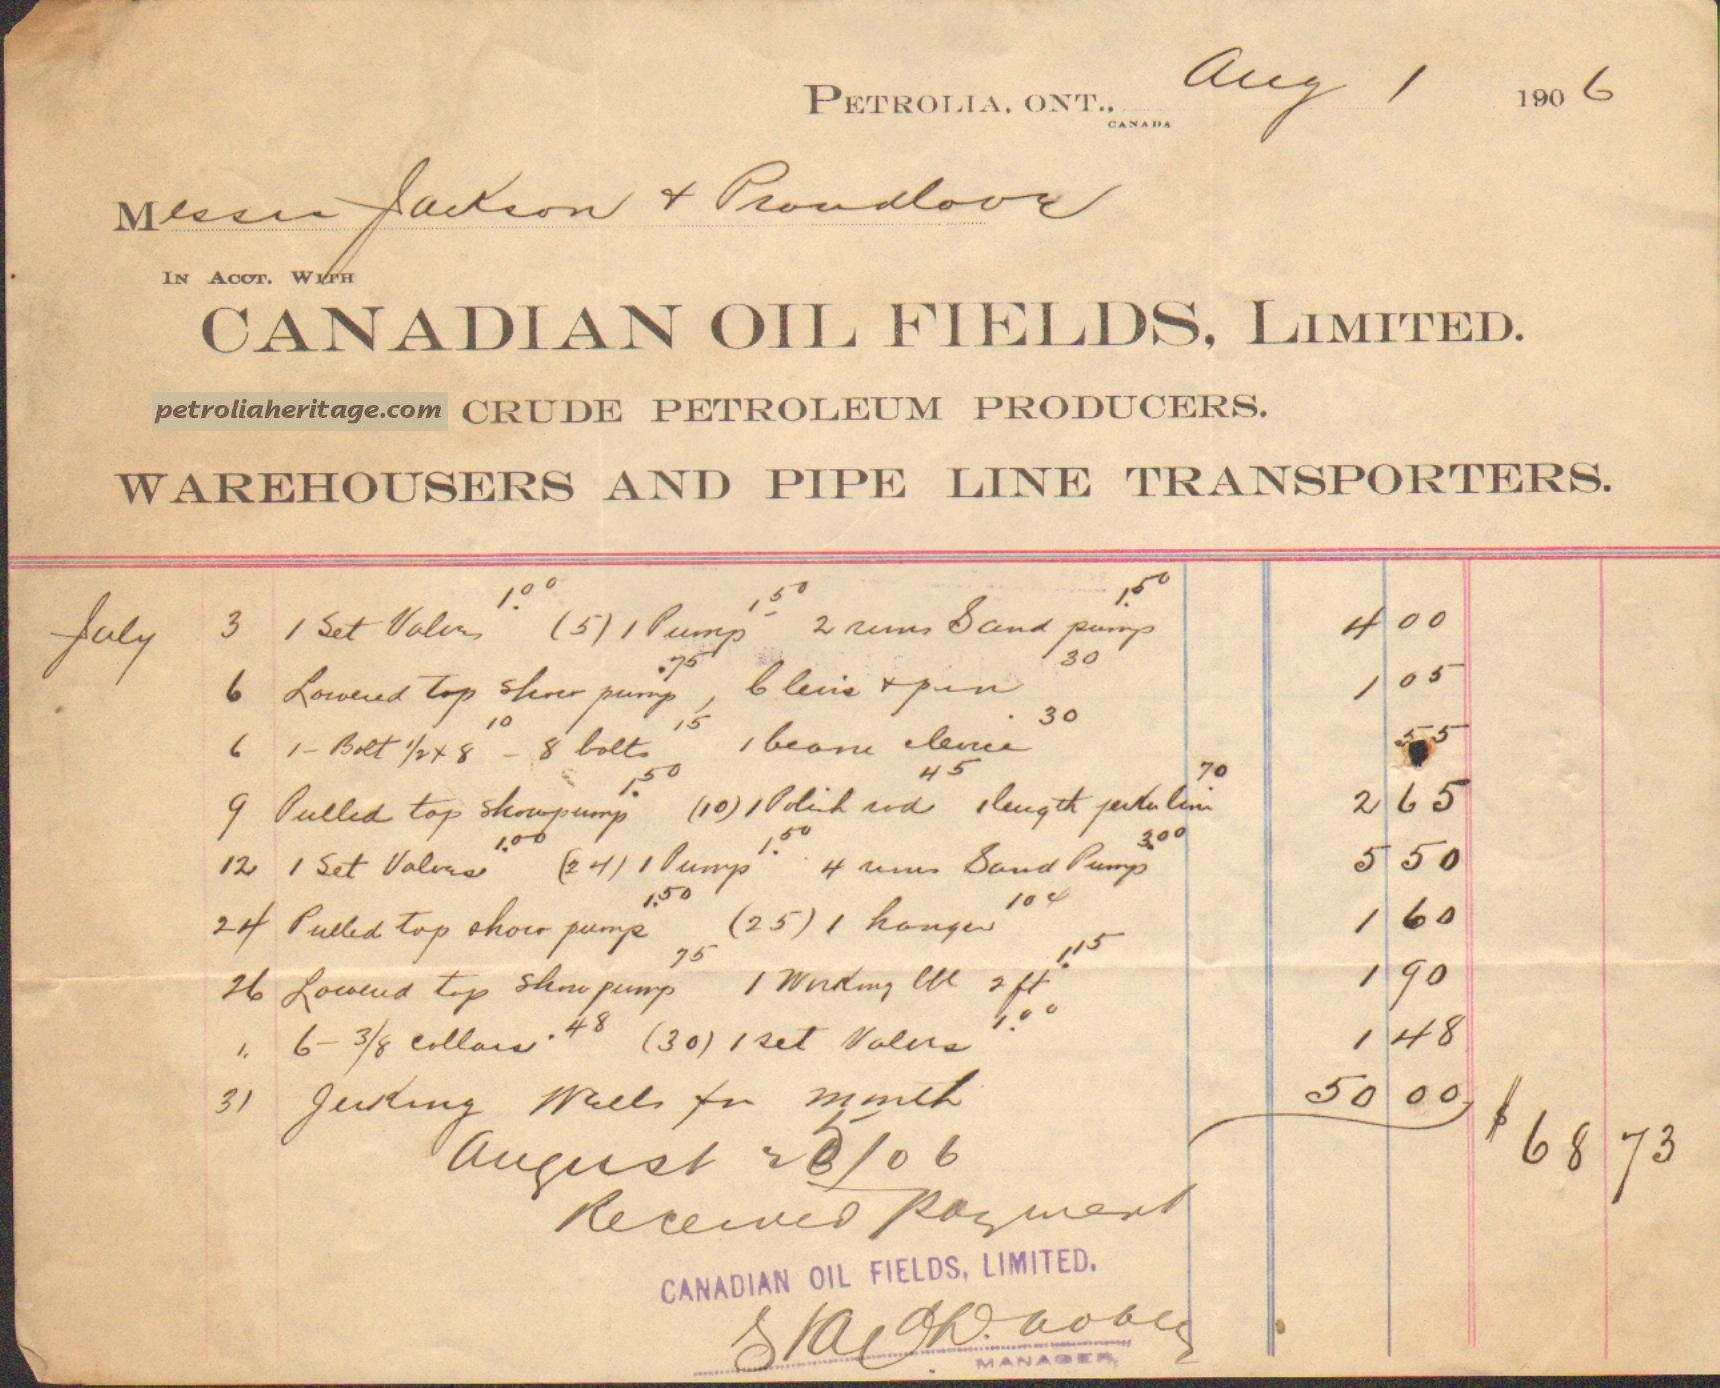 PETROLIA, ONT., CANADA Aug 1 1906
Messrs Jackson & Proudlove
IN ACCT. WITH
CANADIAN OIL FIELDS, LIMITED.
petroliaheritage.com CRUDE PETROLEUM PRODUCERS.
WAREHOUSERS AND PIPE LINE TRANSPORTERS.
July 3 1 Set Valves 1.00 (5) 1 Pump 1.50 2 runs Sand pump 1.50 4 00
6 Lowered top show pump .75, Clevis & pin 30 1 05
6 1- Bolt 1/2 x 8 10 - 8 bolts 15 1 beam clevice 30 55
9 Pulled top show pump 1.50 (10) 1 Polish rod 45 1 length jerker line 70 2 65
12 1 Set Valves 1.00 (24) 1 Pump 1.50 4 runs Sand Pump 3.00 5 50
24 Pulled top show pump 1.50 (25) 1 hanger 10 ¢ 1 60
26 Lowered top show pump 75 1 Working bbl 2 ft 1.15 1 90
" 6 - 3/8 collars .48 (30) 1 set Valves 1.00 1 48
31 Jerking Wells for month 50 00
$ 68 73
August 25/06
Received payment
CANADIAN OIL FIELDS, LIMITED.
MANAGER,